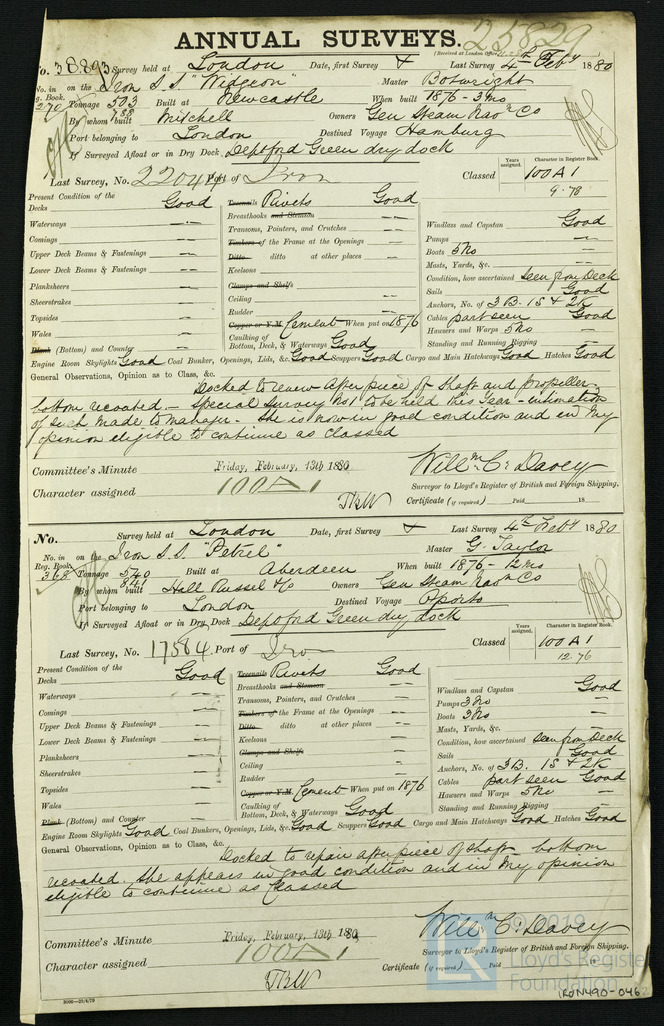 25829
ANNUAL SURVEYS.
(Received at London Office
No. 38893 Survey held at London Date, first Survey Last Survey 4th Feby 1880
No. in Reg. Book. 270 on the Iron S.S. "Widgeon" Master Botwright
Tonnage 503 788 Built at Newcastle When built 1876 - 3 mo
By whom built Mitchell Owners Gen Steam Navn Co
Port belonging to London Destined Voyage Hamburg
If Surveyed Afloat or in Dry Dock Deptford Green dry dock
Last Survey, No. 22044 Port of Iron Classed Years assigned. Character in Register Book. 100 A 1
9.78
Present Condition of the
Decks Good
Waterways
Comings
Upper Deck Beams & Fastenings
Lower Deck Beams & Fastenings
Planksheers
Sheerstrakes
Topsides
Wales
Plank (Bottom) and Counter
Treenails Rivets Good
Breasthooks and Stemson
Transoms, Pointers, and Crutches
Timbers of the Frame at the Openings
Ditto ditto at other places
Keelsons
Clamps and Shelfs
Ceiling
Rudder
Copper or Y.M. Cement When put on 1876
Caulking of Bottom, Deck, & Waterways Good
Windlass and Capstan Good
Pumps
Boats 5 No
Masts, Yards, &c.
Condition, how ascertained Seen from Deck
Sails Good
Anchors, No. of 3 B. 1 S & 2 K
Cables part seen Good
Hawsers and Warps 5 No
Standing and Running Rigging
Engine Room Skylights Good Coal Bunker, Openings, Lids, &c. Good Scuppers Good Cargo and Main Hatchways Good Hatches Good
General Observations, Opinion as to Class, &c.
Docked to renew after piece of shaft and propeller.
bottom recoated. - Special Survey No 1 to be held this year - intimation
of such made to manager. - She is now in good condition and in my
opinion eligible to continue as classed
Committee's Minute Friday, February, 13th 1880
Character assigned 100A1
Willm C. Davey
Surveyor to Lloyd's Register of British and Foreign Shipping.
Certificate (if required) Paid 18
No. Survey held at London Date, first Survey Last Survey 4th Feby 1880
No. in Reg. Book. 368 on the Iron S.S. "Petrel" Master G. Taylor
Tonnage 540 Built at Aberdeen When built 1876 - 12 mo
By whom built Hall Russel & Co Owners Gen Steam Navn Co
Port belonging to London Destined Voyage Oporto
If Surveyed Afloat or in Dry Dock Deptford Green dry dock
Last Survey, No. 17584 Port of Iron Classed Years assigned. Character in Register Book. 100 A 1
12.76
Present Condition of the
Decks Good
Waterways
Comings
Upper Deck Beams & Fastenings
Lower Deck Beams & Fastenings
Planksheers
Sheerstrakes
Topsides
Wales
Plank (Bottom) and Counter
Treenails Rivets Good
Breasthooks and Stemson
Transoms, Pointers, and Crutches
Timbers of the Frame at the Openings
Ditto ditto at other places
Keelsons
Clamps and Shelfs
Ceiling
Rudder
Copper or Y.M. Cement When put on 1876
Caulking of Bottom, Deck, & Waterways Good
Windlass and Capstan Good
Pumps 3 No
Boats 3 No
Masts, Yards, &c.
Condition, how ascertained Seen from Deck
Sails Good
Anchors, No. of 3 B. 1 S & 2 K
Cables part seen Good
Hawsers and Warps 5 No
Standing and Running Rigging
Engine Room Skylights Good Coal Bunkers, Openings, Lids, &c. Good Scuppers Good Cargo and Main Hatchways Good Hatches Good
General Observations, Opinion as to Class, &c.
Docked to repair after piece of shaft bottom
recoated. She appears in good condition and in my opinion
eligible to continue as Classed
Committee's Minute Friday, February, 13th 1880
Character assigned 100A1
Willm C. Davey
Surveyor to Lloyd's Register of British and Foreign Shipping.
Certificate (if required) Paid 18
© 2019
Lloyd's Register
Foundation
IRON490-0462